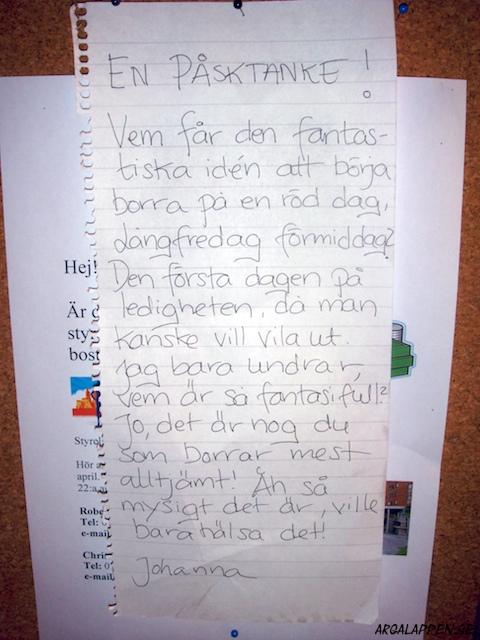 EN PÅSKTANKE!
Vem får den fantas-
tiska idén att börja
borra på en röd dag,
Långfredag förmiddag?
Den första dagen på
ledigheten, då man
kanske vill vila ut.
Jag bara undrar,
vem är så fantasifull?
Jo, det är nog du
som borrar mest
alltjämt! Äh så
mysigt det är, ville
bara hälsa det!
Johanna
Hej!
Är
sty
bost
Styrel
Hör a
april.
22:a a
Robe
Tel:
e-mail
Chri
Tel: 0
e-mail
ARGALAPPEN.SE